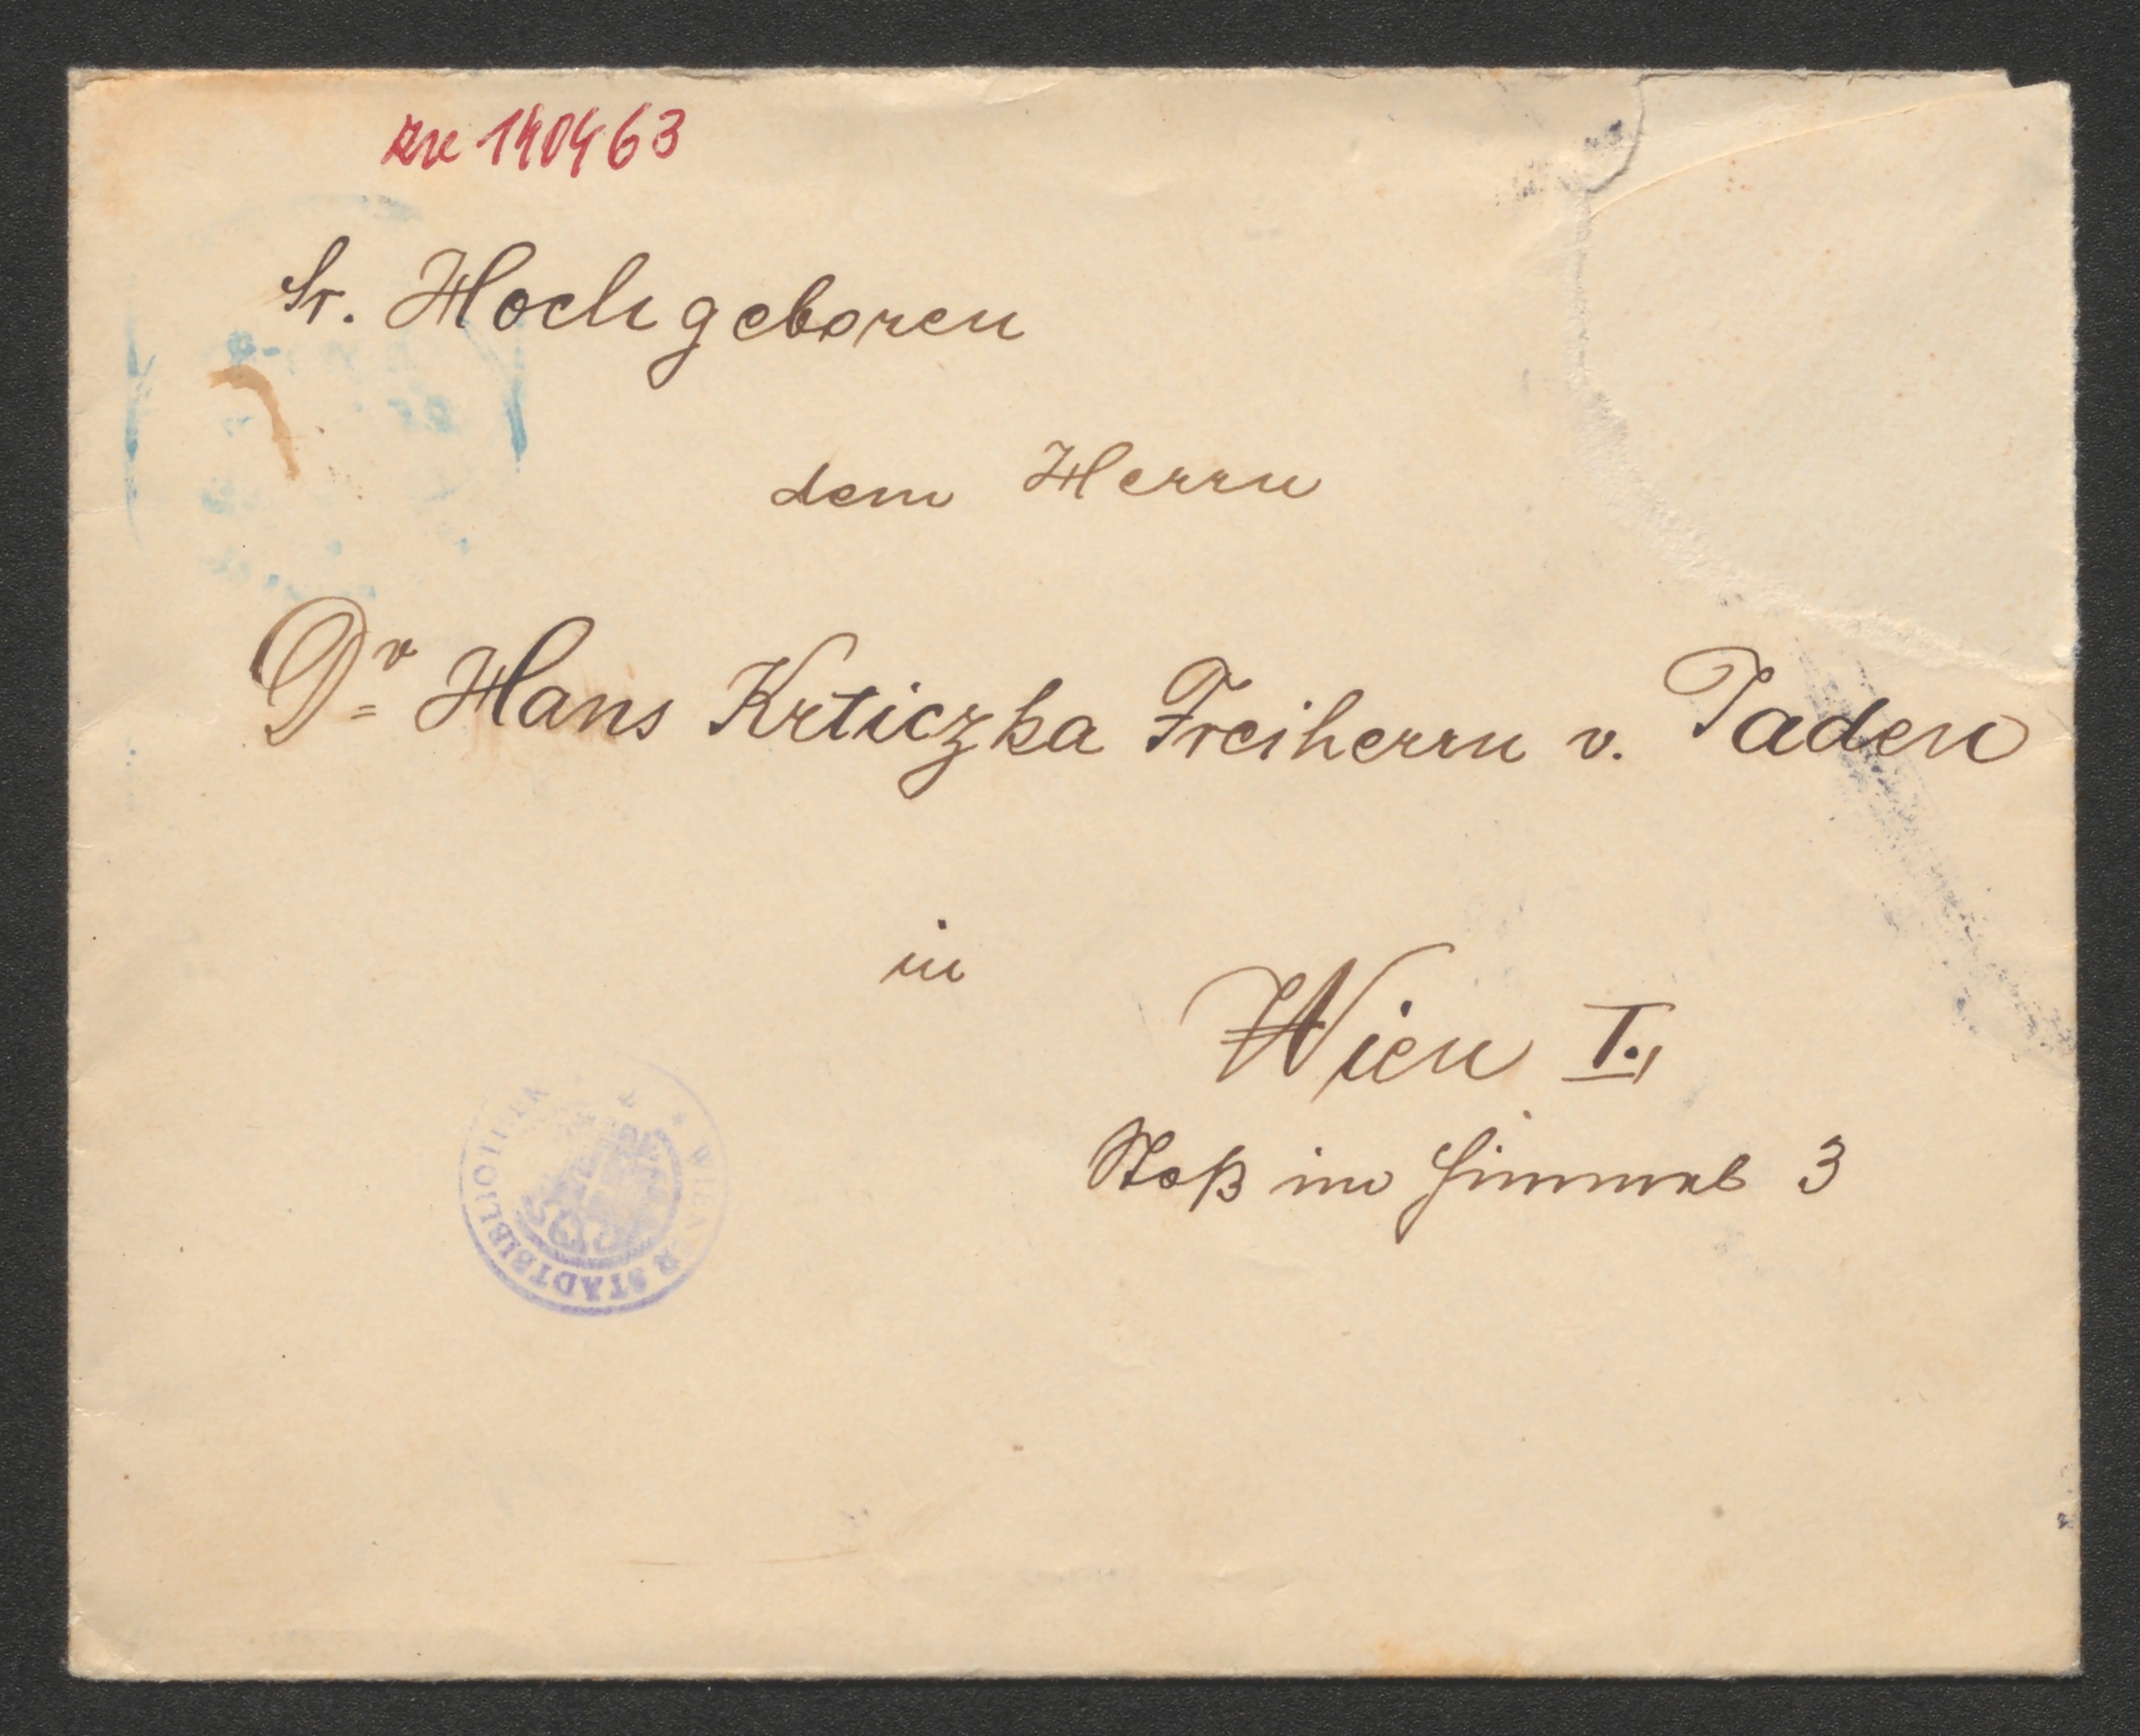 zu 140463
Sr. Hochgeboren
dem Herrn
Dr Hans Krticzka Freiherrn v. Jaden
in
Wien I.,
Stoß im Himmel 3
WIENER STADTBIBLIOTHEK